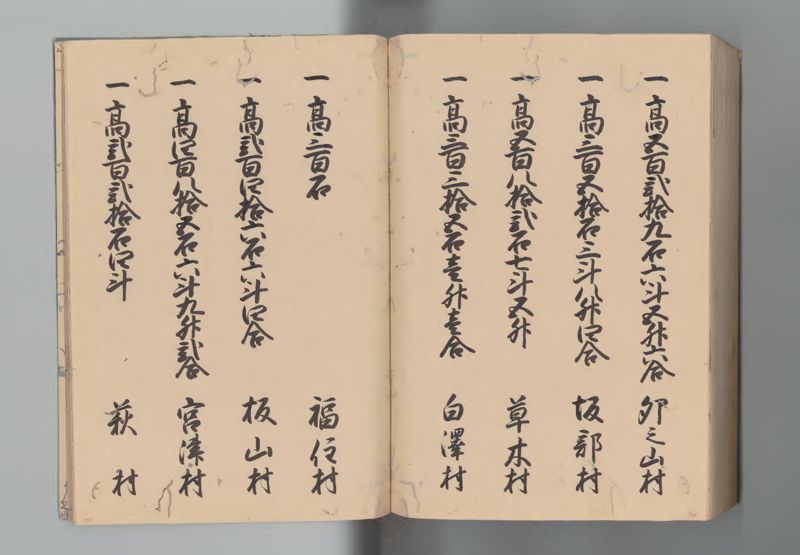 一高五百弐拾九石六斗五升六合 卯之山村
一高三百五拾石三斗八升四合 坂部村
一高五百八拾弐石七斗五升 草木村
一高三百三拾五石壱升壱合 白澤村
一高三百石 福住村
一高弐百四拾六石六斗四合 板山村
一高四百八拾五石六斗九升弐合 宮津村
一高弐百弐拾石四斗 萩村